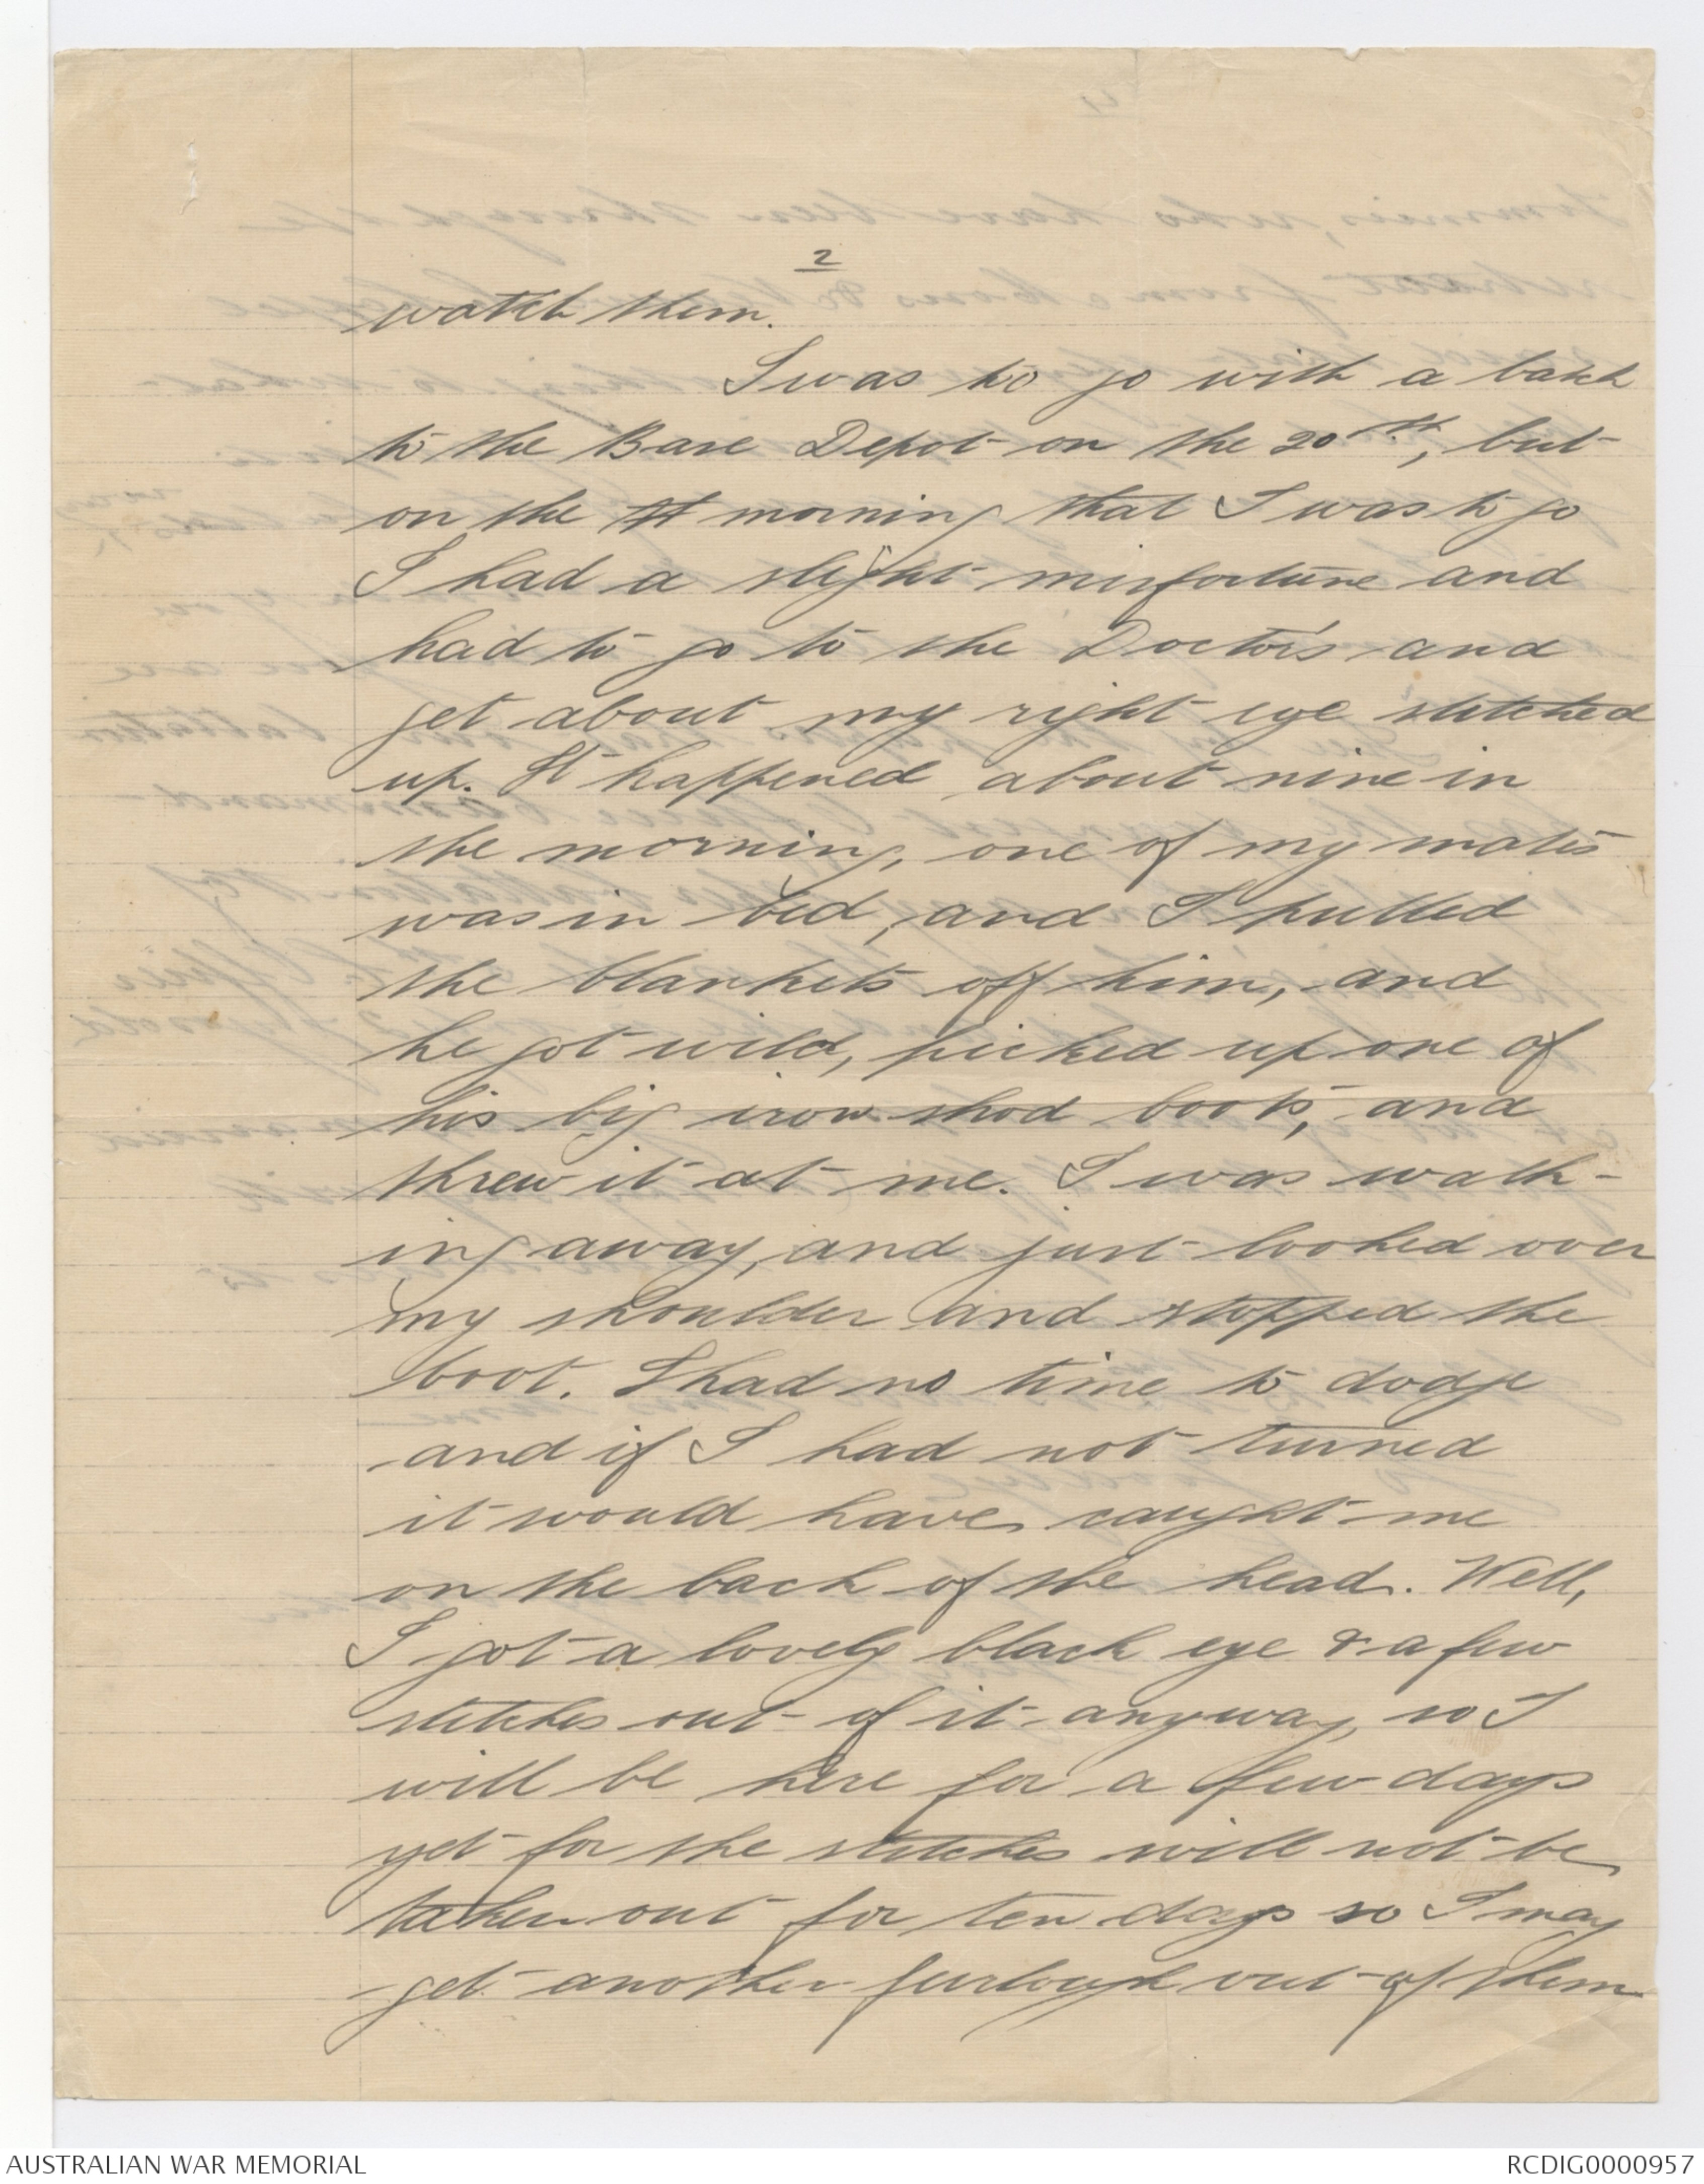 2
watch them.
I was to go with a batch
to the Base Depot on the 20th, but
on the morning that I was to go
I had a slight misfortune and
had to go to the Doctor's and
get about my right eye stitched
up. It happened about nine in
the morning, one of my mates
was in bed, and I pulled
the blankets off him, and
he got wild, picked up one of
his big iron shod boots, and
threw it at me. I was walk-
ing away, and just looked over
my shoulder and stopped the
boot. I had no time to dodge
and if I had not turned
it would have caught me
on the back of the head. Well,
I got a lovely black eye & a few
stitches out of it anyway, so I
will be here for a few days
yet for the stitches will not be
taken out for ten days so I may
get another furlough out of them
AUSTRALIAN WAR MEMORIAL
RCDIG0000957